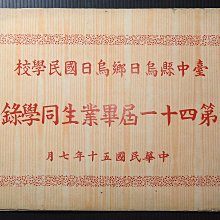 臺中縣烏日鄉烏日國民學校
第四十一屆畢業生同學錄
中華民國五十年七月